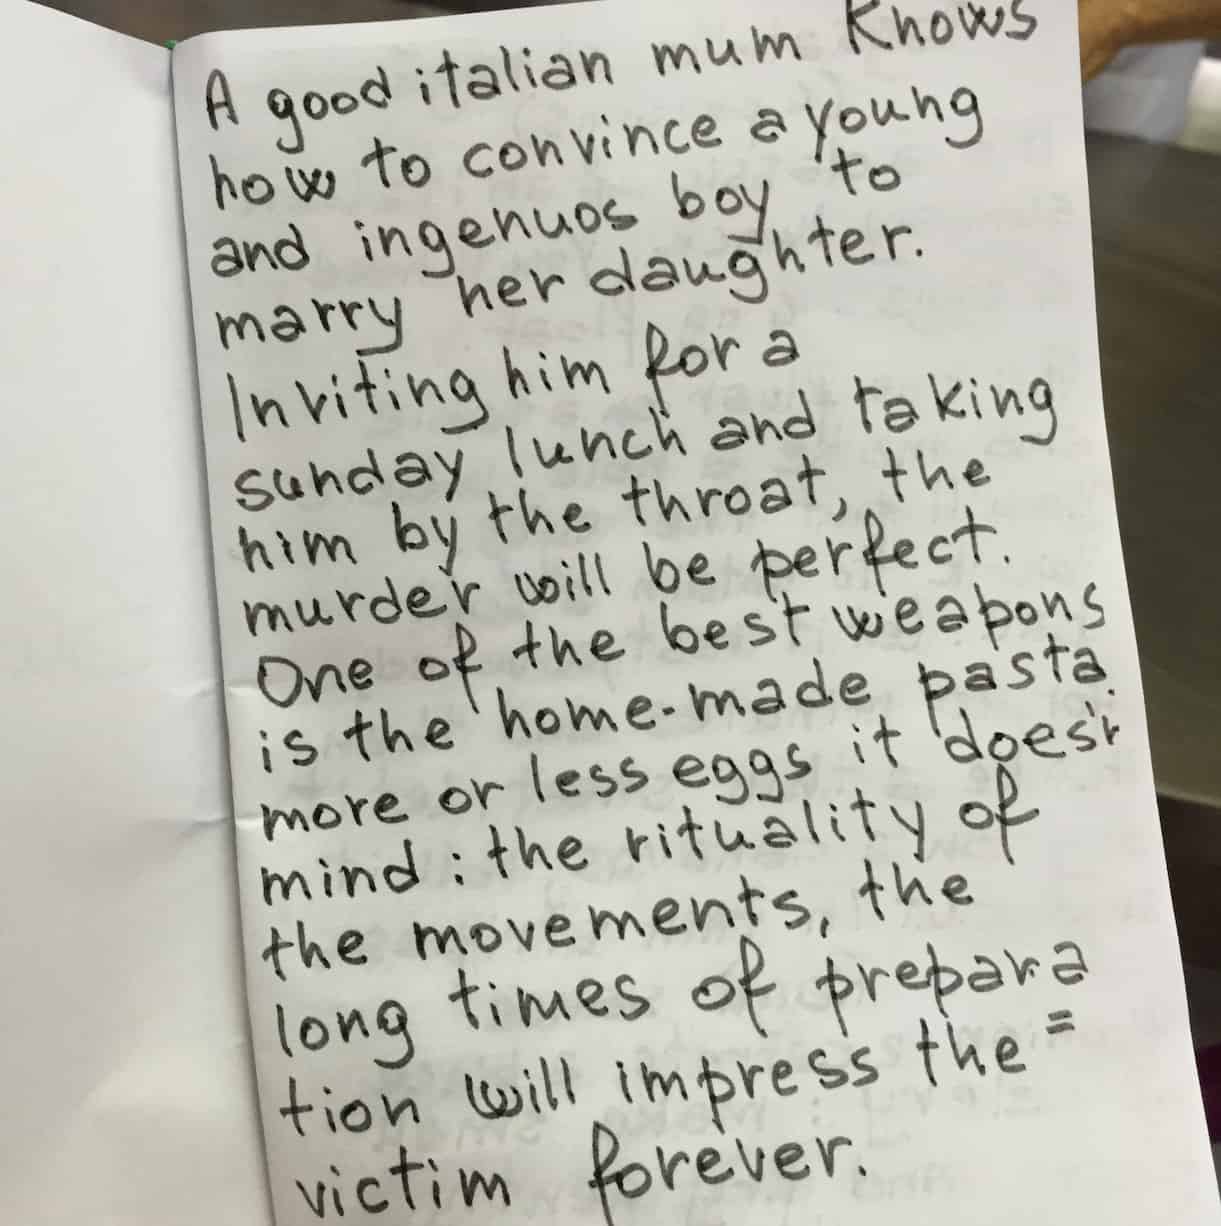 A good italian mum Knows
how to convince a young
and ingenuos boy to
marry her daughter.
Inviting him for a
sunday lunch and taking
him by the throat, the
murder will be perfect.
One of the best weapons
is the home-made pasta.
more or less eggs it does'n
mind: the rituality of
the movements, the
long times of prepara
=
tion will impress the
victim forever.